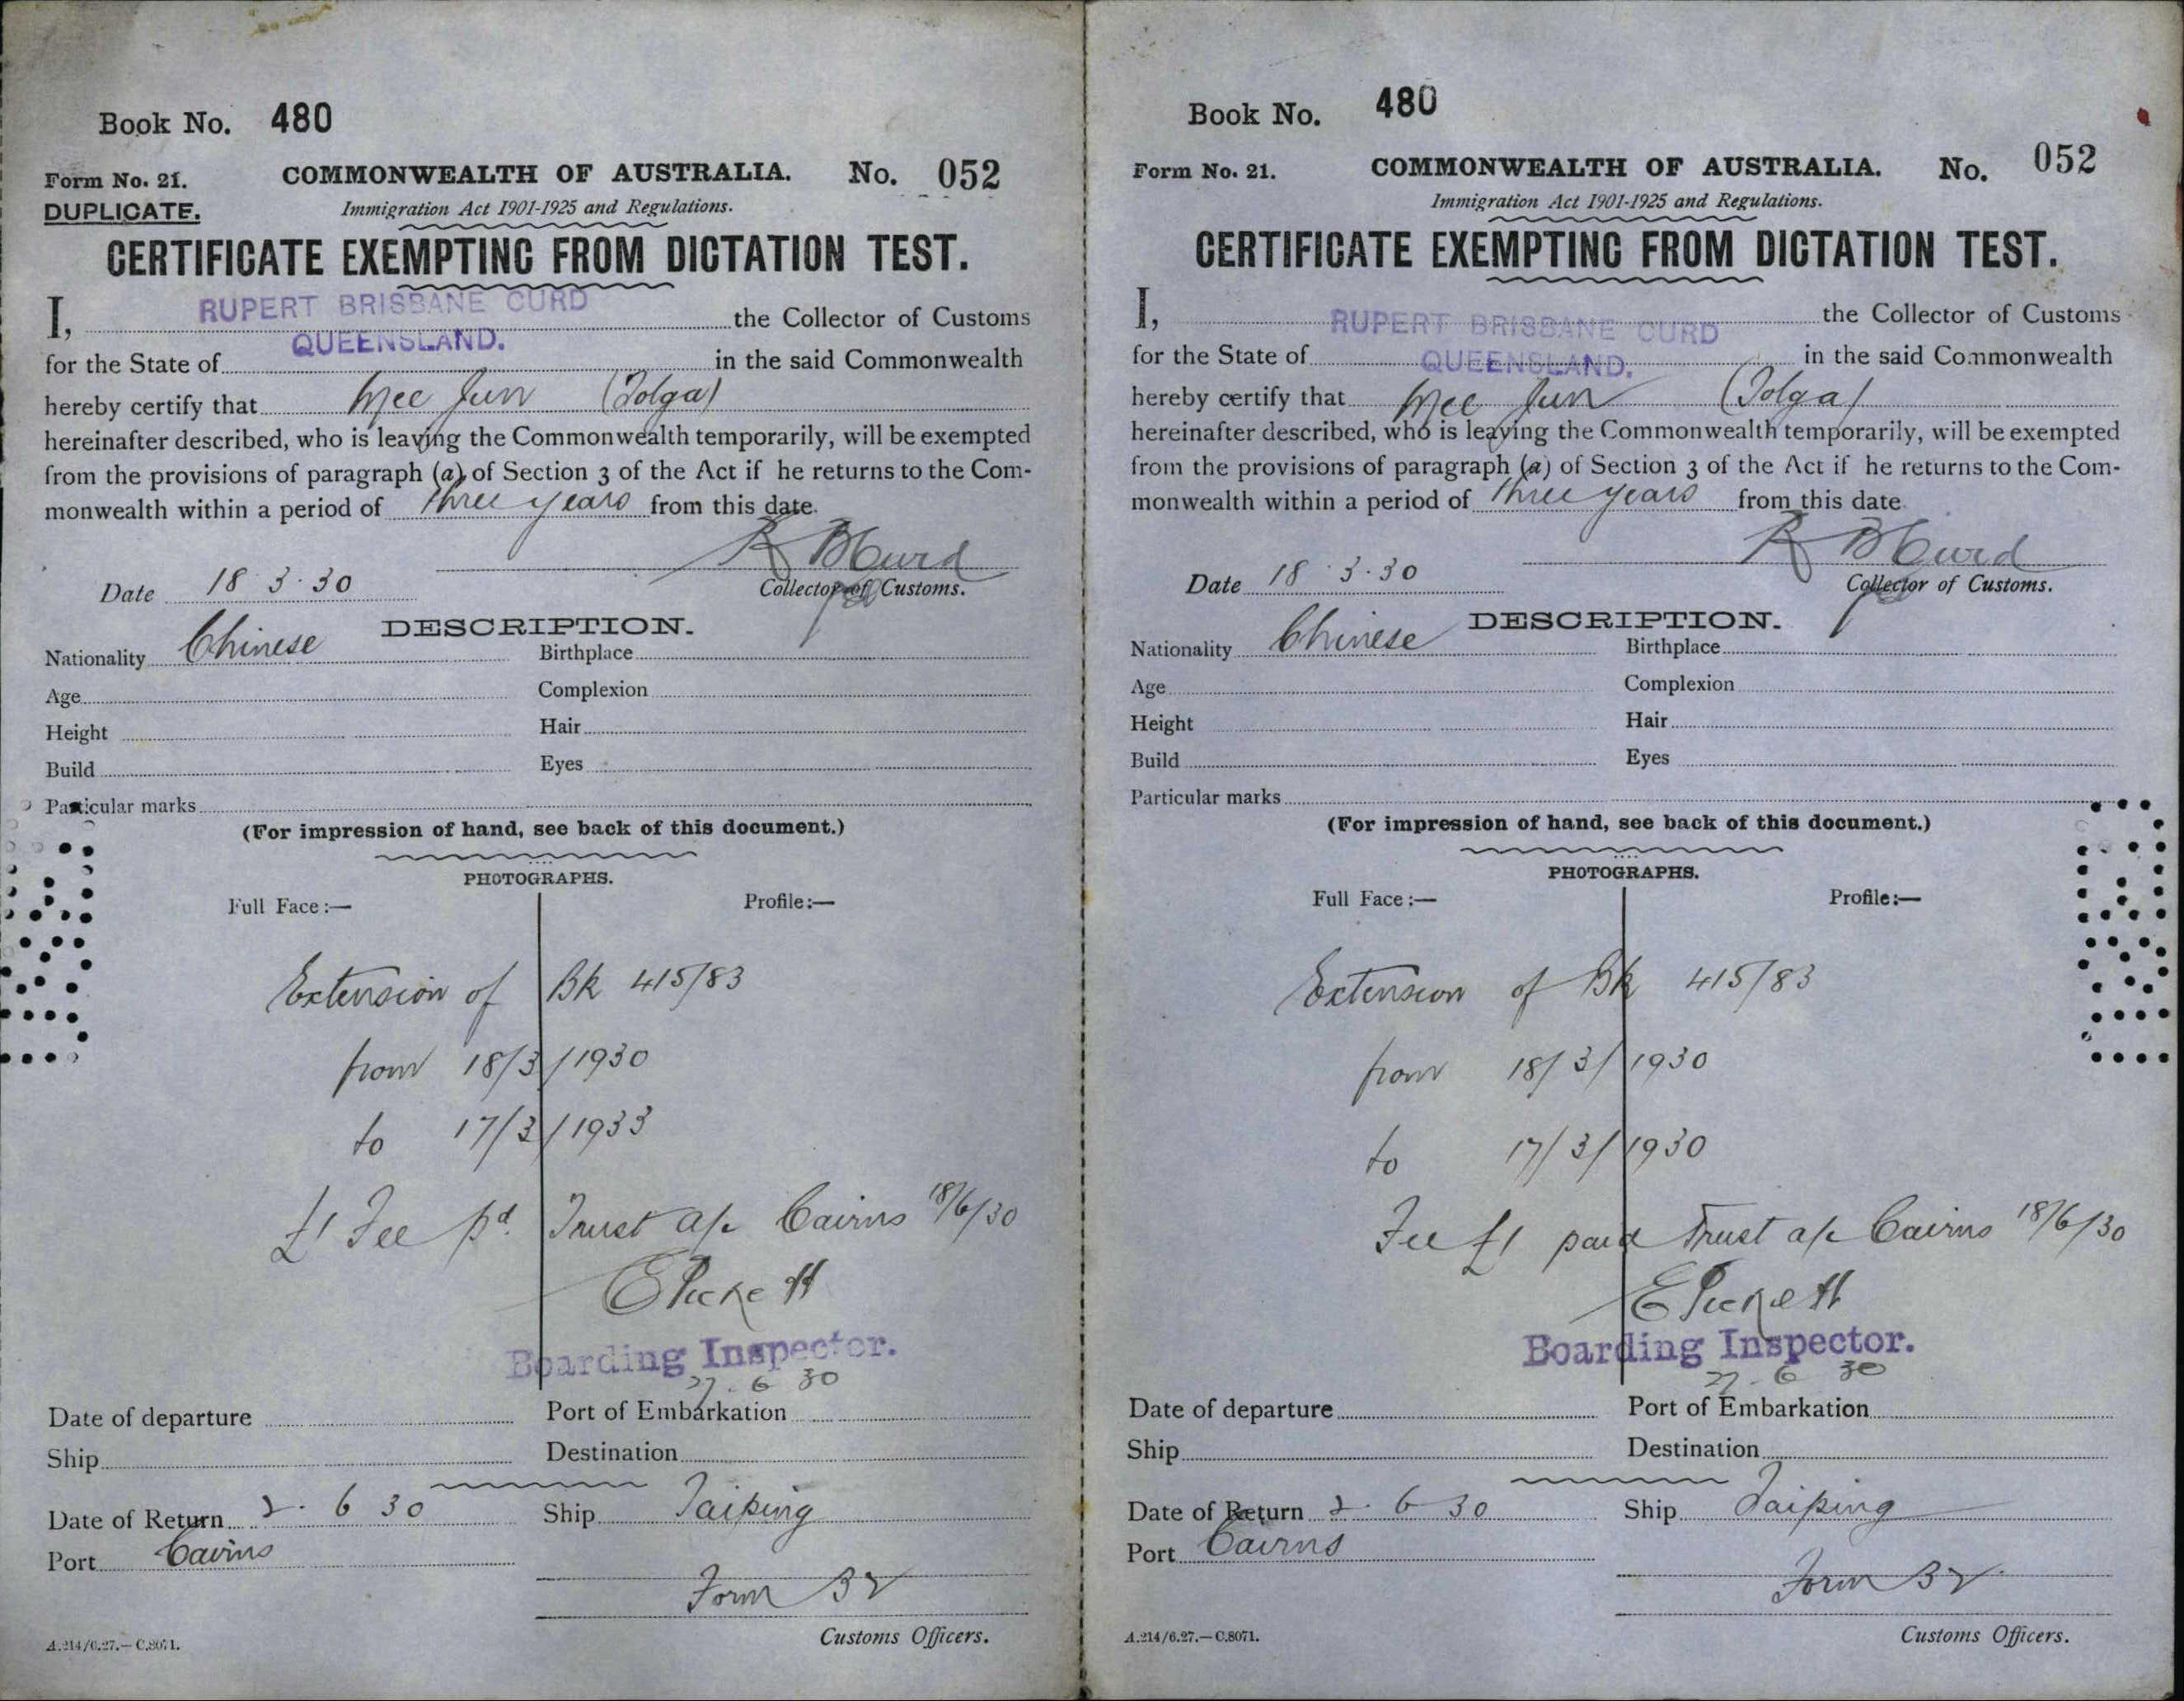 Book No. 480
Form No. 21. COMMONWEALTH OF AUSTRALIA. No. 052
DUPLICATE. Immigration Act 1901-1925 and Regulations.
CERTIFICATE EXEMPTING FROM DICTATION TEST.
I, RUPERT BRISBANE CURD the Collector of Customs
for the State of QUEENSLAND. in the said Commonwealth
hereby certify that Mee Jun (Tolga)
hereinafter described, who is leaving the Commonwealth temporarily, will be exempted
from the provisions of paragraph (a) of Section 3 of the Act if he returns to the Com-
monwealth within a period of three years from this date.
R B Curd
Date 18 3.30 Collector of Customs.
DESCRIPTION.
Nationality Chinese Birthplace
Age Complexion
Height Hair
Build Eyes
Particular marks
(For impression of hand, see back of this document.)
PHOTOGRAPHS.
Full Face:— Profile:—
Extension of Bk 415/83
from 18/3/1930
to 17/3/1933
£1 Fee pd. Trust a/c Cairns 18/6/30
E Pickett
Boarding Inspector.
27.6 30
Date of departure Port of Embarkation
Ship Destination
Date of Return 2. 6 30 Ship Taiping
Port Cairns
Form 32
Customs Officers.
A.214/6.27.—C.8071.
Book No. 480
Form No. 21. COMMONWEALTH OF AUSTRALIA. No. 052
Immigration Act 1901-1925 and Regulations.
CERTIFICATE EXEMPTING FROM DICTATION TEST.
I, RUPERT BRISBANE CURD the Collector of Customs
for the State of QUEENSLAND. in the said Commonwealth
hereby certify that Mee Jun (Tolga)
hereinafter described, who is leaving the Commonwealth temporarily, will be exempted
from the provisions of paragraph (a) of Section 3 of the Act if he returns to the Com-
monwealth within a period of three years from this date.
R B Curd
Date 18.3.30 Collector of Customs.
DESCRIPTION.
Nationality Chinese Birthplace
Age Complexion
Height Hair
Build Eyes
Particular marks
(For impression of hand, see back of this document.)
PHOTOGRAPHS.
Full Face:— Profile:—
Extension of Bk 415/83
from 18/3/1930
to 17/3/1930
Fee £1 paid Trust a/c Cairns 18/6/30
E Pickett
Boarding Inspector.
27.6 30
Date of departure Port of Embarkation
Ship Destination
Date of Return 2. 6 30 Ship Taiping
Port Cairns
Form 32
Customs Officers.
A.214/6.27.—C.8071.